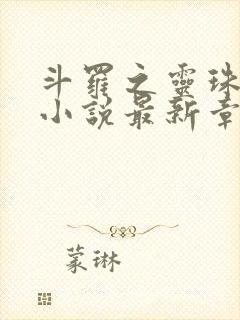 斗羅之靈珠
小說最新章
蒙琳